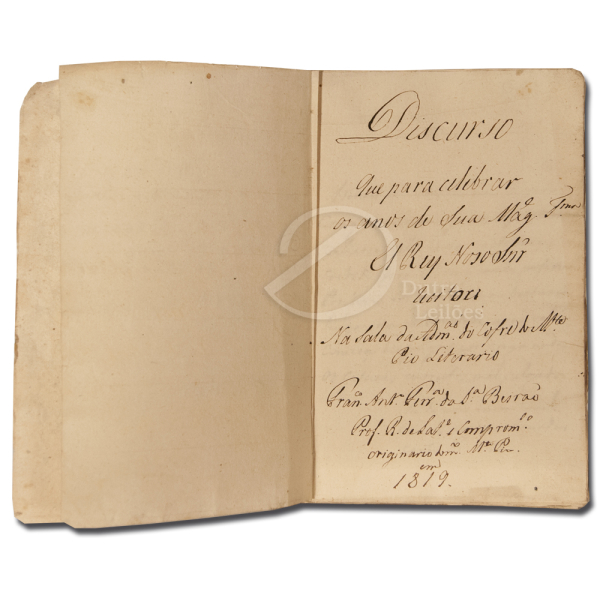 Discurso
Que para celebrar
os anos de Sua Mag.e F.ma
El Rey Noso Snr
Recitou
Na Sala da Adm.am do Cofre do M.te
Pio Literario
Fran.co Ant.o Ferr.a da S.a Beirão
Prof. R. de La.o e Comprom.o
originario do m.o M.te Pio
em
1819.
Dutra
Leilões